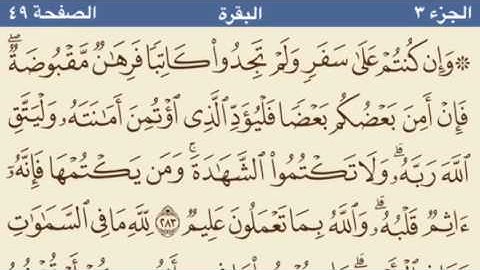 الجزء ٣ البقرة الصفحة ٤٩
۞ وَإِن كُنتُمْ عَلَىٰ سَفَرٍ وَلَمْ تَجِدُوا۟ كَاتِبًا فَرِهَـٰنٌ مَّقْبُوضَةٌ ۖ
فَإِنْ أَمِنَ بَعْضُكُم بَعْضًا فَلْيُؤَدِّ ٱلَّذِى ٱؤْتُمِنَ أَمَـٰنَتَهُۥ وَلْيَتَّقِ
ٱللَّهَ رَبَّهُۥ ۗ وَلَا تَكْتُمُوا۟ ٱلشَّهَـٰدَةَ ۚ وَمَن يَكْتُمْهَا فَإِنَّهُۥٓ
ءَاثِمٌ قَلْبُهُۥ ۗ وَٱللَّهُ بِمَا تَعْمَلُونَ عَلِيمٌ ٢٨٣ لِّلَّهِ مَا فِى ٱلسَّمَـٰوَٰتِ